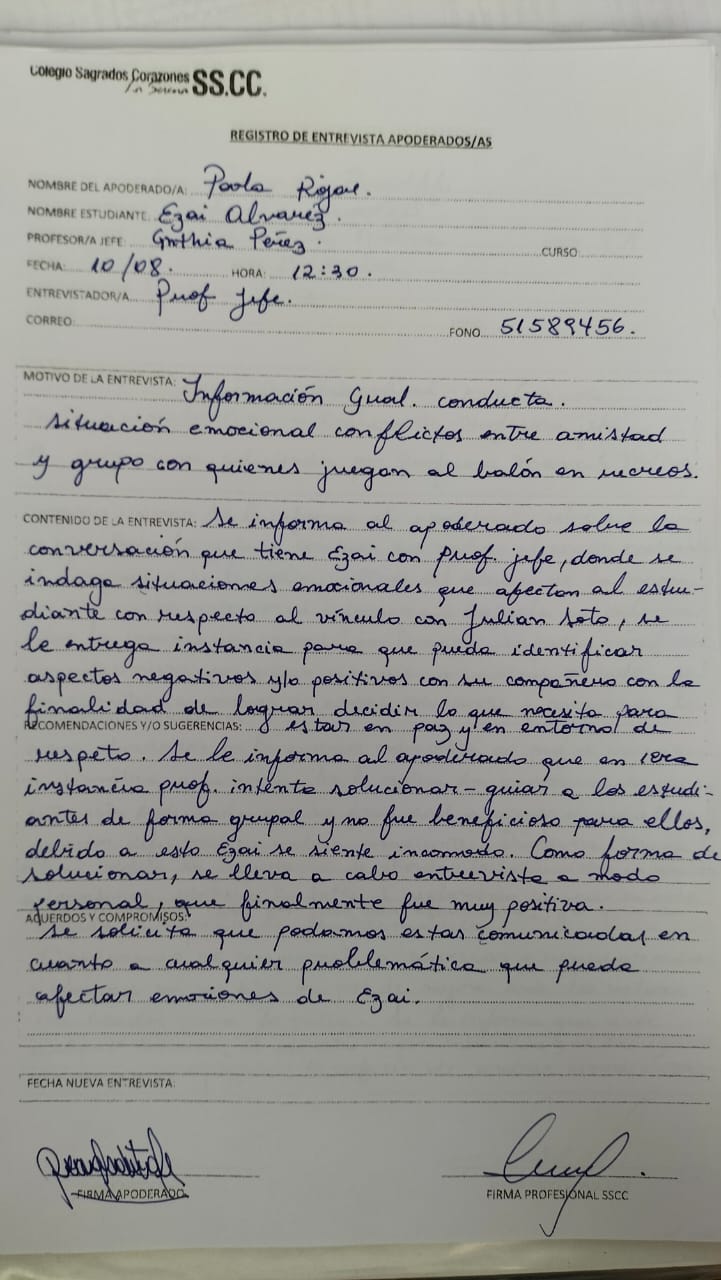 Colegio Sagrados Corazones SS.CC.
La Serena
REGISTRO DE ENTREVISTA APODERADOS/AS
NOMBRE DEL APODERADO/A: Paola
NOMBRE ESTUDIANTE: Ezai Alvarez.
PROFESOR/A JEFE: Cynthia Peréz. CURSO
FECHA: 10/08. HORA: 12:30.
ENTREVISTADOR/A: Prof Jefe.
CORREO: FONO 51589456.
MOTIVO DE LA ENTREVISTA: Información Gual. conducta.
situación emocional conflictos entre amistad
y grupo con quienes juegan al balón en recreos.
CONTENIDO DE LA ENTREVISTA: Se informa al apoderado sobre la
conversación que tiene Ezai con prof. jefe, donde se
indaga situaciones emocionales que afectan al estu-
diante con respecto al vínculo con Julian Soto, se
le entrega instancia para que pueda identificar
aspectos negativos y/o positivos con su compañero con la
finalidad de lograr decidir lo que necesita para
RECOMENDACIONES Y/O SUGERENCIAS: estar en paz y en entorno de
respeto. Se le informa al apoderado que en 1era
instancia prof. intenta solucionar - guiar a los estudi-
antes de forma grupal y no fue beneficioso para ellos,
debido a esto Ezai se siente incomodo. Como forma de
solucionar, se lleva a cabo entrevista a modo
personal, que finalmente fue muy positiva.
ACUERDOS Y COMPROMISOS:
Se solicita que podamos estar comunicadas en
cuanto a cualquier problemática que pueda
afectar emociones de Ezai.
FECHA NUEVA ENTREVISTA:
FIRMA APODERADO FIRMA PROFESIONAL SSCC